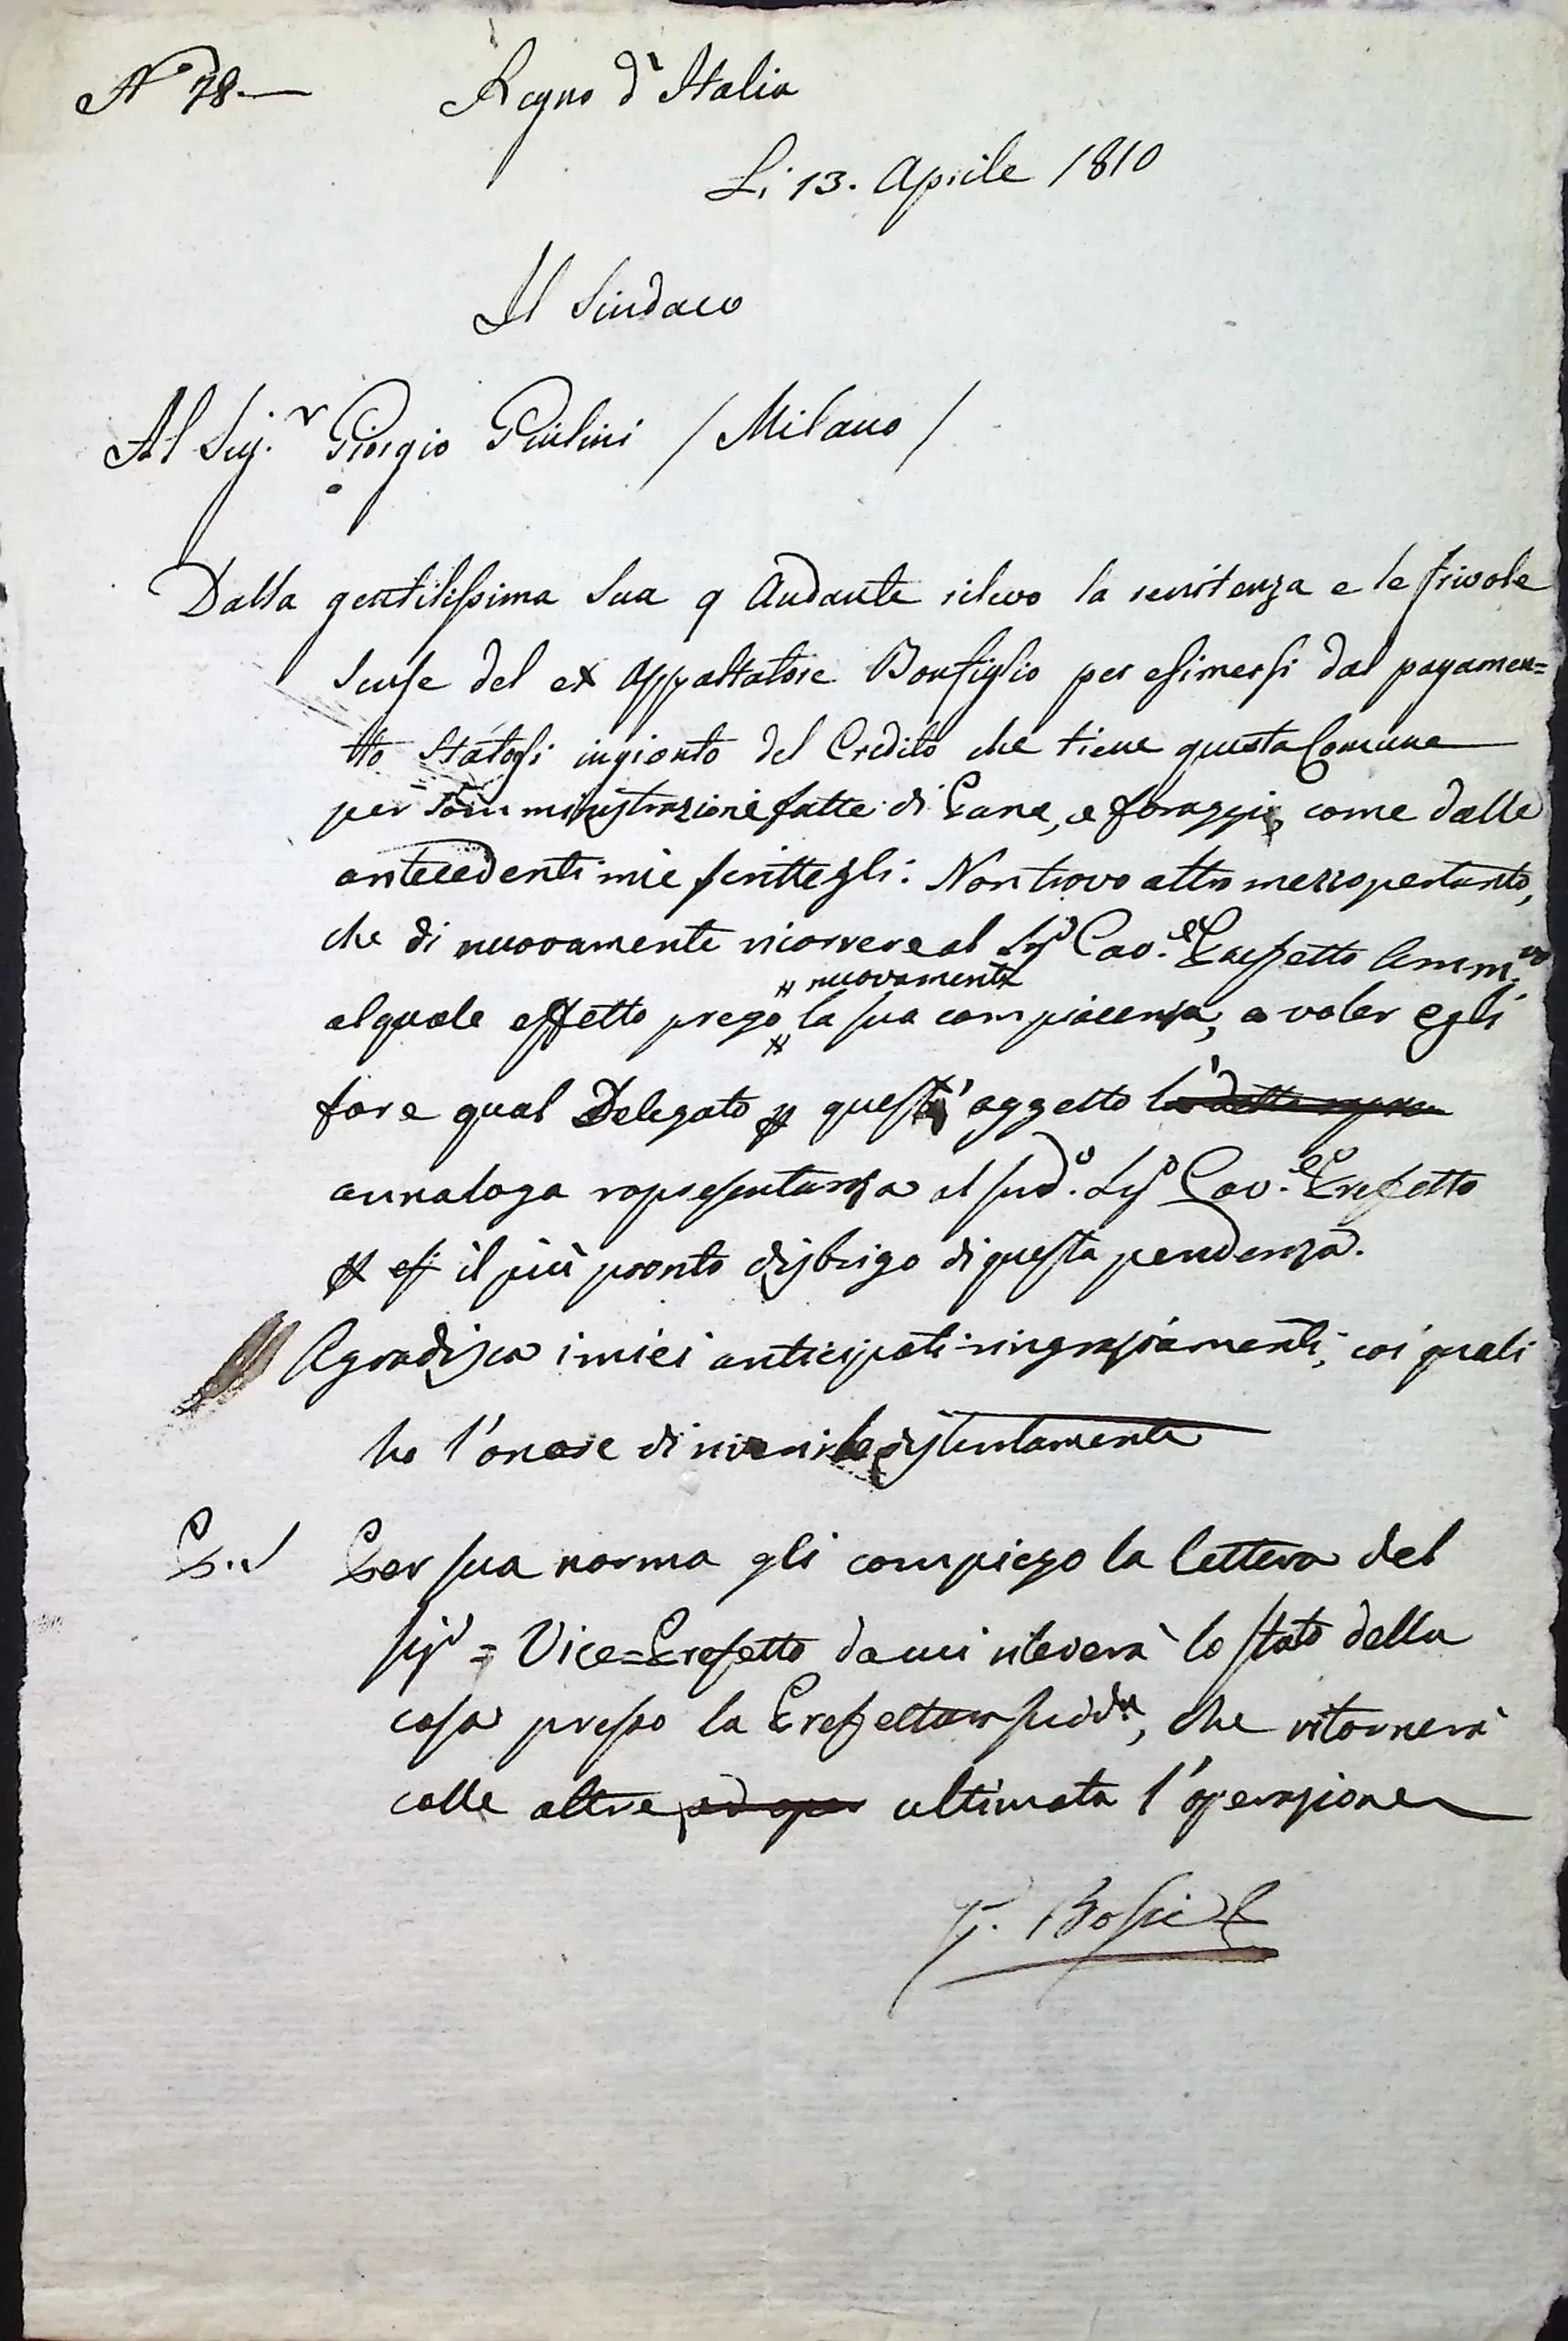 N° 78.
Regno d'Italia
Li 13. Aprile 1810
Il Sindaco
Al Sig.r Giorgio Giulini / Milano /
Dalla gentilissima Sua 9 Andante rilevo la renitenza e le frivole
scuse del ex Appaltatore Bonfiglio per esimersi dal pagamen=
tto statogli ingionto del Credito che tiene questa Comune
per somministrazione fatte di Pane, e foraggi, come dalle
antecedenti mie scrittegli: Non trovo altro mezzo pertanto,
che di nuovamente ricorrere al Sigr Cav.e Prefetto Amm.vo
nuovamente
al quale effetto prego la sua compiacenza, a voler egli
fare qual Delegato p quest' oggetto
annaloga rapresentanza al sud.o Sigr Cav.e Prefetto
p il più pronto disbrigo di questa pendenza.
Agradisca i miei anticipati ringraziamenti, coi quali
ho l'onore di riverirla distintamente
P.S. Per sua norma gli compiego la lettera del
Sigr Vice=Prefetto da cui rileverà lo stato della
cosa presso la Prefettura sudda, che ritornerà
colle altre ultimata l'operazione
G. Bossi